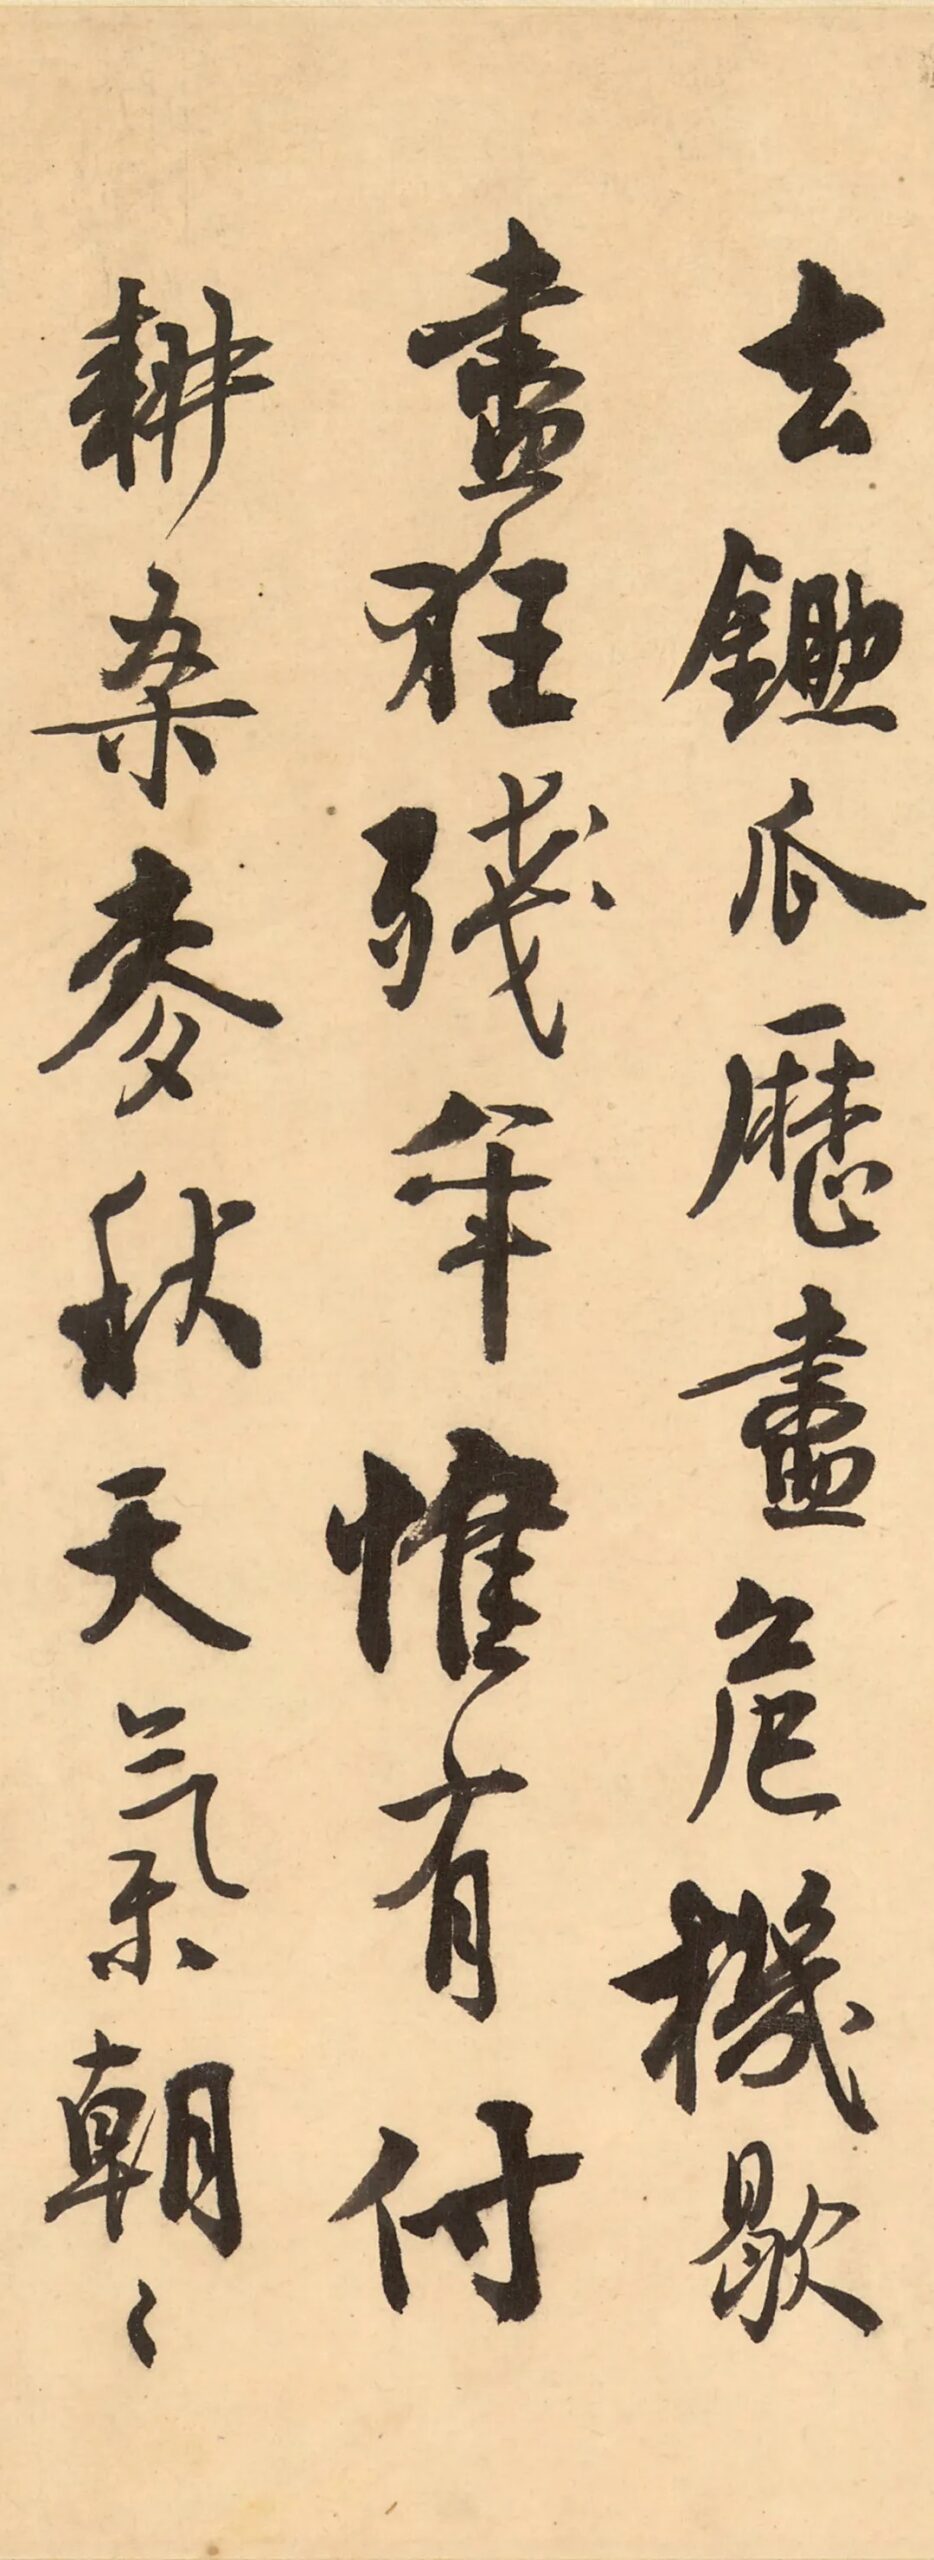 去鋤瓜歷盡危機歇
盡狂殘年惟有付
耕桒麥秋天氣朝〻